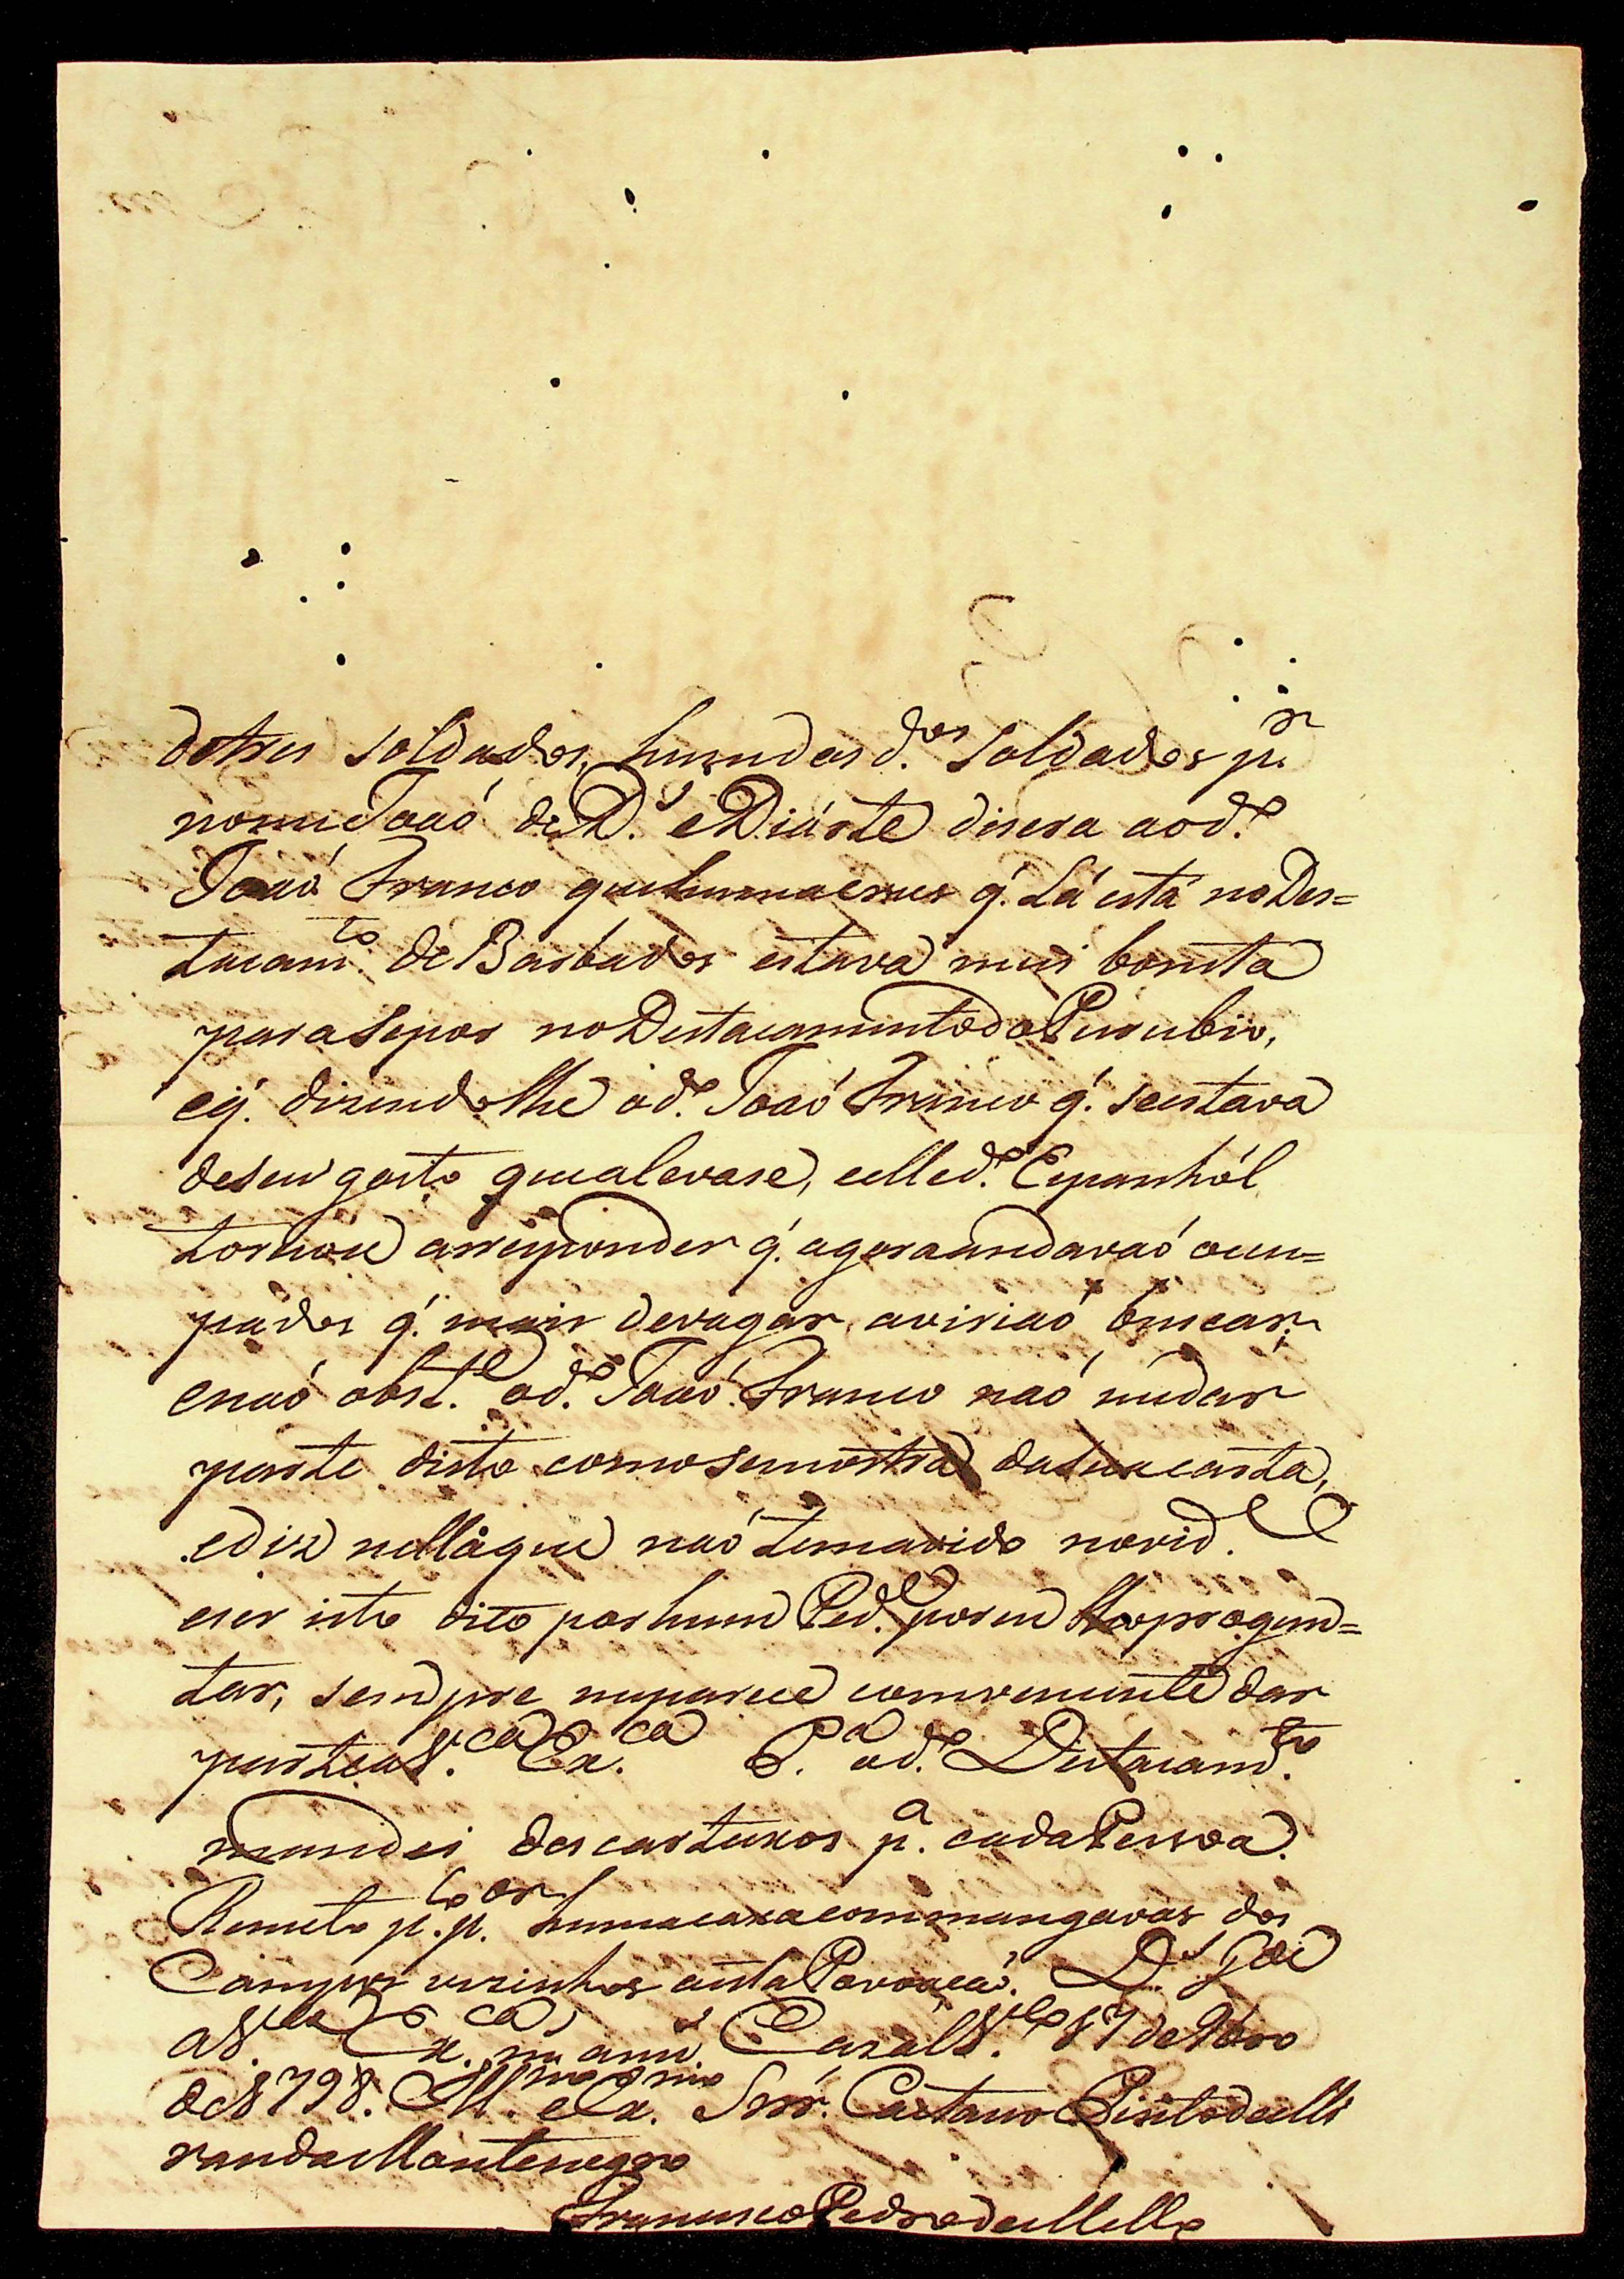 detres soldados, hum dos d.os soldados p.r
nome Joaó de D.s e Diúste disera aod.o
Joaó Franco que huma cruz q́. Lá está no Des=
tacam.to de Barbados estava mui bonita
para se pór no Destacamento do
eq́. dizendolhe od.o Joaó Franco q́. se estava
deseu gosto que a levase, e elle d.o Espanhól
tornou a responder q́. agora andavaó ocu=
pados q́. mais devagar aviriaó buscar:
enaó obst.e od.o Joaó Franco naó medar
parte disto como se mostra da sua carta,
ediz nella que naó tem avido novid.e
eser isto dito por hum Ped. por em pregun=
tar, sempre me parece comveniente dar
parte a V.ca Ex.ca P.a od.o Destacam.to
mandei des cartuxos p.a cada Pessoa.
Remeto p.lo p.or huma caxa com mangavas dos
Campos vezinhos aesta Povoaçaó. D.s G.de
a V.ca Ex.ca m. ann.s Cazalv.co 17 de 9bro
de 1798. Ill.mo e Ex.mo Senr. Caetano Pinto de Mi
randa Montenegro
Francisco Pedro de Mello